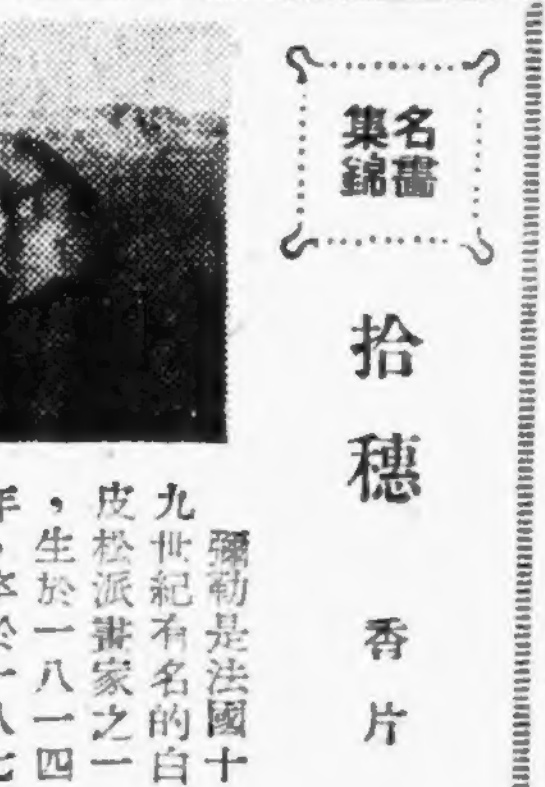 名畵
集錦
拾穗
香片
彌勒是法國十
九世紀有名的白
皮松派畵家之一
，生於一八一四
年，卒於一八七